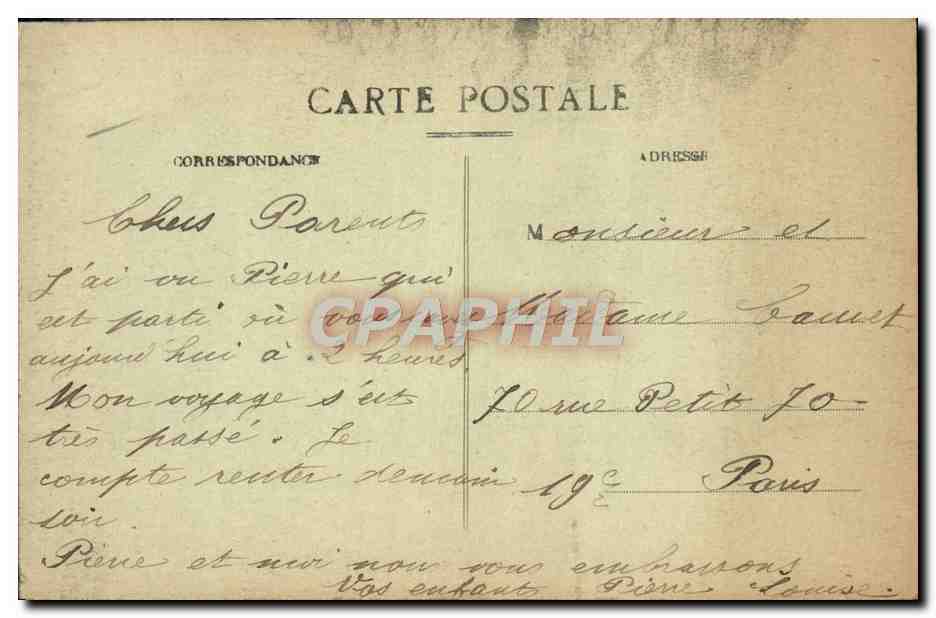 CARTE POSTALE
CORRESPONDANCE
ADRESSE
Chers Parents
J'ai vu Pierre qui
est parti où
aujourd'hui à 2 heures.
Mon voyage s'est
très passé. Je
compte renter demain
soir.
Pierre et moi nou vous embrassons
Vos enfant Pierre Louise.
Monsieur et
Madame
70 rue Petit 70
19e Paris
CPAPHIL